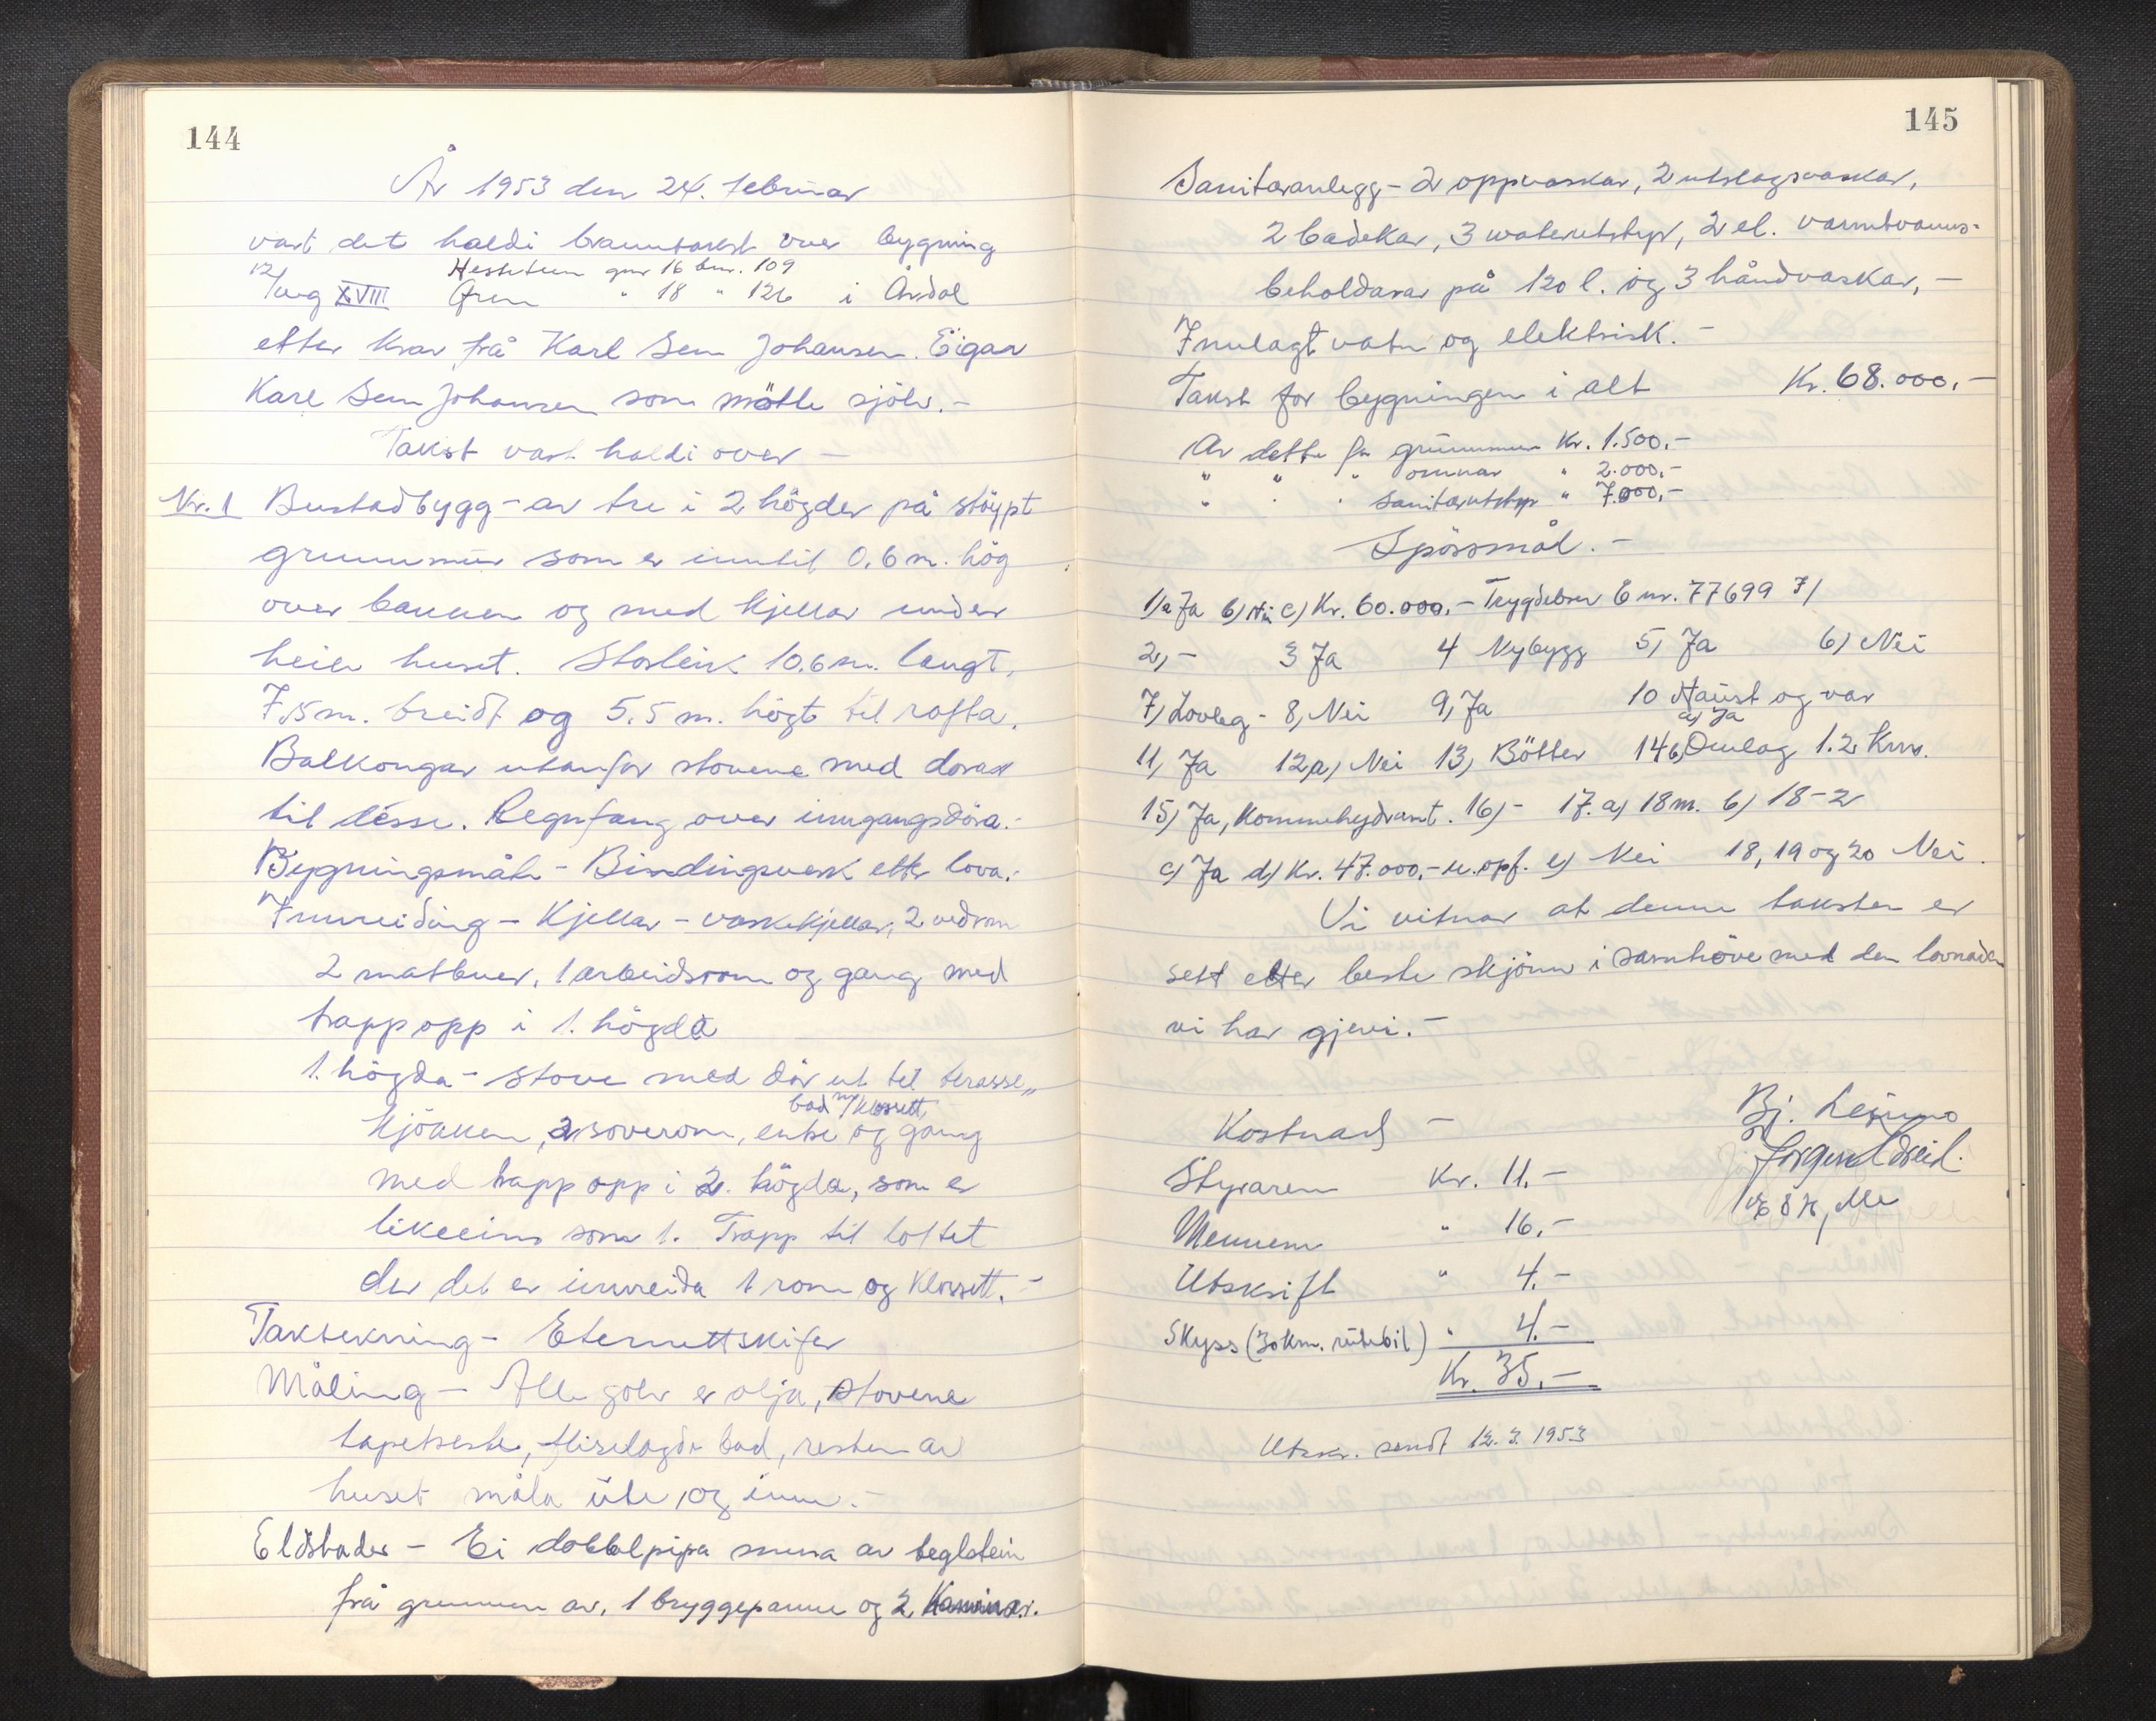 144
År 1953 den 24. februar
vart det haldi branntakst over bygning
Hestetun gnr 16 bnr. 109
XVIII Øren " 18 " 126 i Årdal
etter krav frå Karl Sem Johansen. Eigar
Karl Sem Johansen som møtte sjölv.-
Takst vart haldi over -
Nr. 1 Bustadbygg - av tre i 2 högder på stöypt
grunnmur som er inntil 0.6 m. hög
over bakken og med kjellar under
heile huset. Storleik 10.6 m. langt,
7.5 m. breidt og 5.5 m. högt til rafta.
Balkongar utanfor stovene med dörar
til desse. Regnfang over inngangsdöra.-
Bygningsmåte - Bindingsverk etter lova.-
Innreiding - Kjellar - vaskekjellar, 2 vedrom
2 matbuer, 1 arbeidsrom og gang med
trapp opp i 1. högda
1. högda - stove med dör ut til terasse,
bad m/klossett,
kjökken, 2 soverom, entre og gang
med trapp opp i 2. högda, som er
likeeins som 1. Trapp til loftet
der det er innreida 1 rom og klossett.-
Taktekning - Eternittskifer
Måling - Alle golv er olja, stovene
tapetserte, fliselagde bad, resten av
huset måla ute og inne.-
Eldstader - Ei dobbelpipa mura av teglstein
frå grunnen av, 1 bryggepanne og 2 kaminar.
145
Sanitæranlegg - 2 oppvaskar, 2 utslagsvaskar,
2 badekar, 3 waterutstyr, 2 el. varmtvanns-
beholdarar på 120 l. og 3 håndvaskar, -
Innlagt vatn og elektrisk. -
Takst for bygningen i alt Kr. 68.000,-
Av dette for grunnmur Kr. 1.500,-
" " " omnar " 2.000,-
" " " Sanitærutstyr " 7.000,-
Spörsmål. -
1) a Ja b) Nei c) Kr. 60.000,- Trygdebrev E nr. 77699 7/
2, - 3 Ja 4 Nybygg 5) Ja 6) Nei
7) Lovleg - 8, Nei 9, Ja 10 Naust og var
a) Ja
11, Ja 12, a, Nei 13, Bötter 14 b, Omlag 1.2 km.
15) Ja, Kommehydrant. 16) - 17. a) 18 m. b) 18-2
c) Ja d) Kr. 47.000,- u. opf. e) Nei 18, 19 og 20 Nei.
Vi vitnar at denne taksten er
sett etter beste skjönn i samhöve med den lovnaden
vi har gjevi. -
Kostnad -
Styraren Kr. 11.-
Mennene " 16,-
Utskrift " 4.-
Skyss (30 km. rutebil) " 4.-
Kr. 35.-
Utskr. sendt 12.3.1953